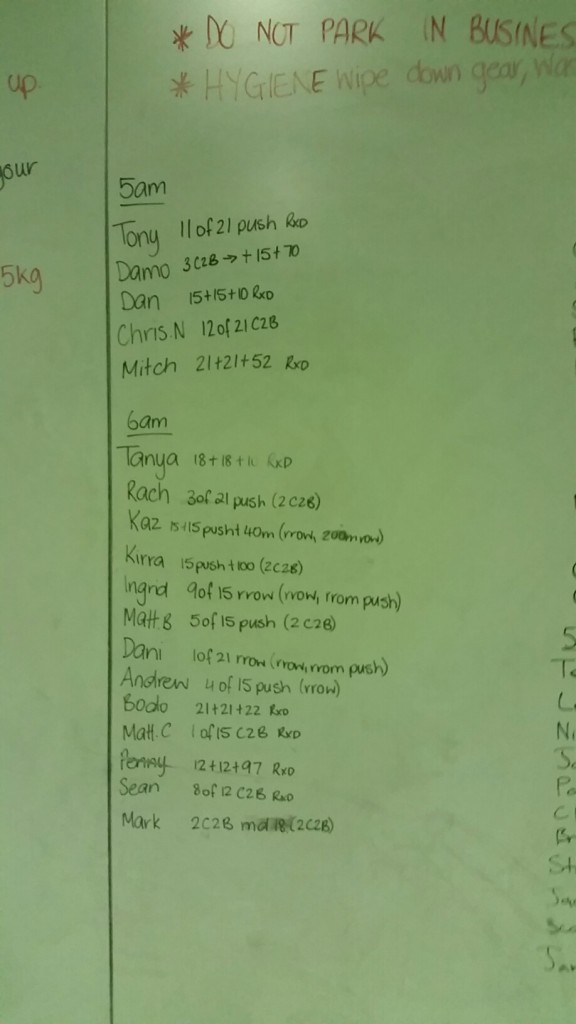 * DO NOT PARK IN BUSINES
* HYGIENE wipe down gear, was
up
your
5kg
5am
Tony 11 of 21 push RxD
Damo 3 C2B → + 15 + 70
Dan 15+15+10 RxD
Chris.N 12 of 21 C2B
Mitch 21+21+52 RxD
6am
Tanya 18+18+11 RxD
Rach 3 of 21 push (2 C2B)
Kaz 15+15 push+ 40m (rrow, 200m row)
Kirra 15 push + 100 (2C2B)
Ingrid 9 of 15 rrow (rrow, rrom push)
Matt.B 5 of 15 push (2 C2B)
Dani 1 of 21 rrow (rrow, rrom push)
Andrew 4 of 15 push (rrow)
Bodo 21+21+22 RxD
Matt.C 1 of 15 C2B RxD
Penny 12+12+97 RxD
Sean 8 of 12 C2B RxD
Mark 2C2B (2C2B)
5
Ta
L
Ni
Pe
Cl
Br
St
Sa
Jan